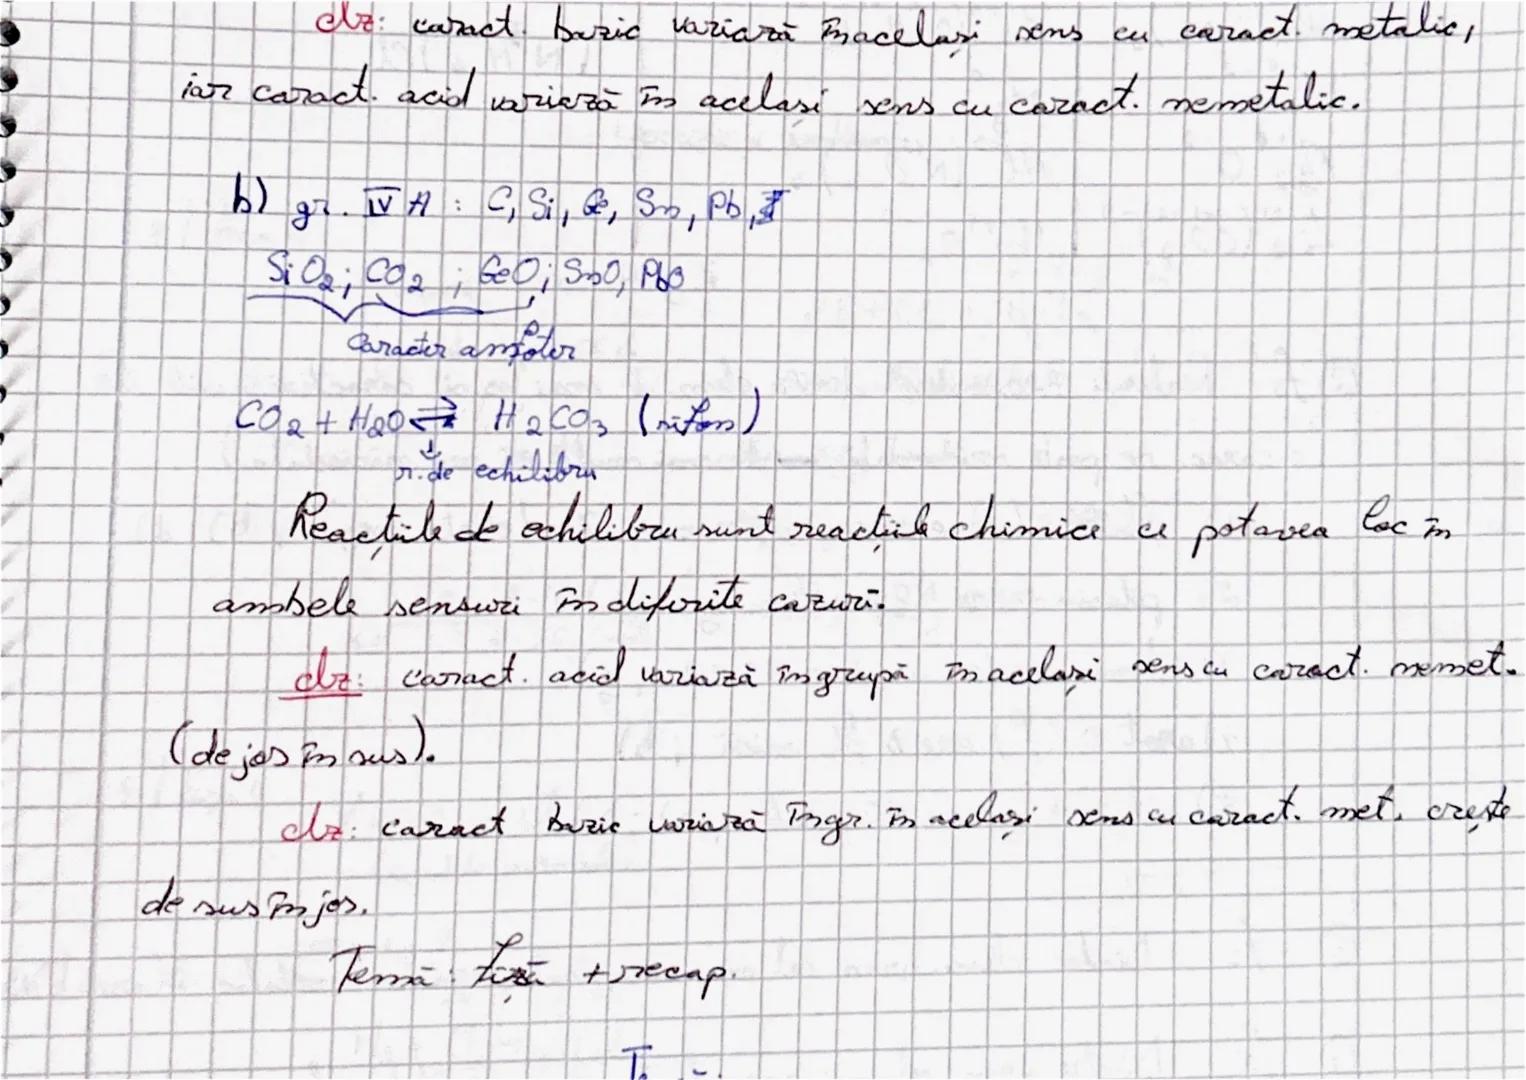 Obz: caract. bazic variază în acelaşi sens cu caract. metalic,
iar caract. acid variază în acelaşi sens cu caract. nemetalic.
b) gr. IV A : C, Si, Ge, Sn, Pb,
SiO2; CO2 ; GeO; SnO, PbO
Caracter amfoter
CO2 + H2O ⇌ H2CO3 (sifon)
↓
r. de echilibru
Reacțiile de echilibru sunt reacțiile chimice ce pot avea loc în
ambele sensuri în diferite cazuri.
Obz: caract. acid variază în grupă în acelaşi sens cu caract. nemet.
(de jos în sus).
Obz: caract bazic variază în gr. în acelaşi sens cu caract. met. creşte
de sus în jos.
Temă: fişă + recap.